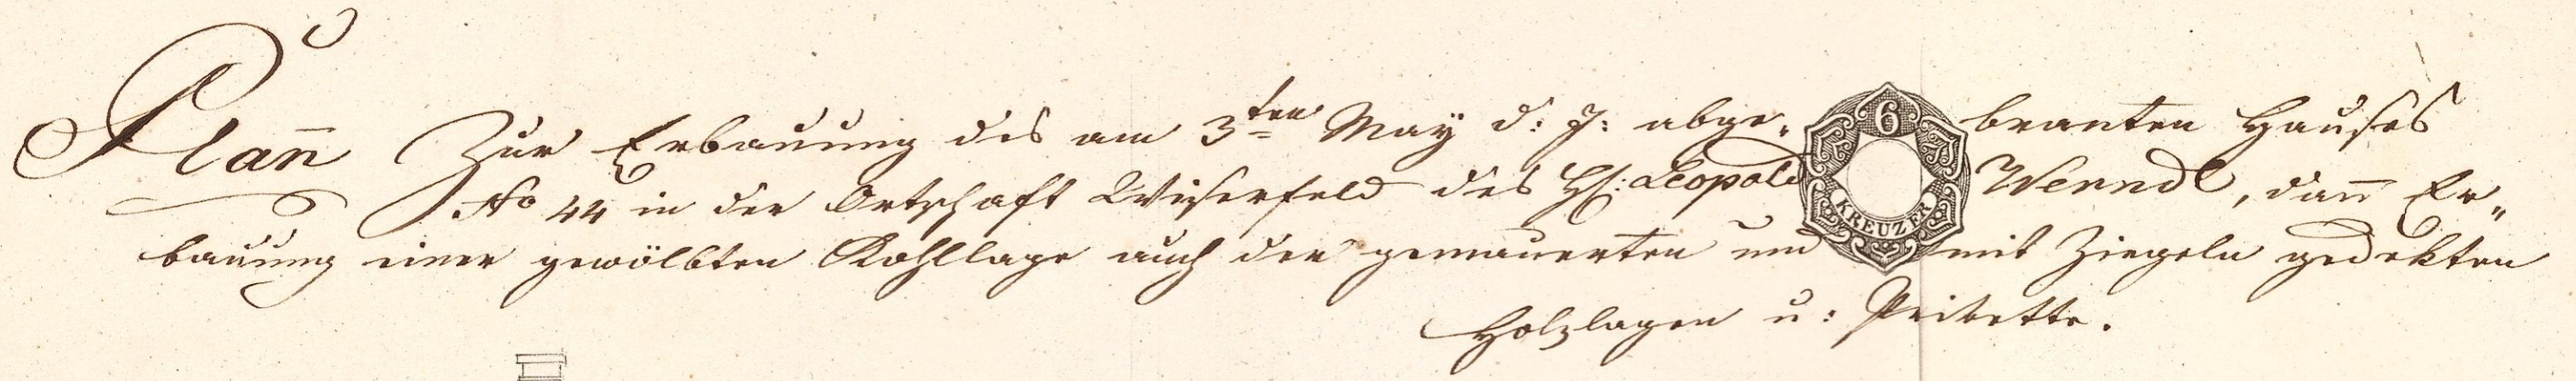 Plan̄ Zur Erbauung des am 3ten May d: J: abge„ branten Hauses
No 44 in der Ortschaft Wiserfeld des H: Leopold Werndl, dan̄ Er„
bauung einer gewölbten Kohllage auch der gemauerten und mit Ziegeln gedekten
Holzlagen u: Privette.
6
KREUZER